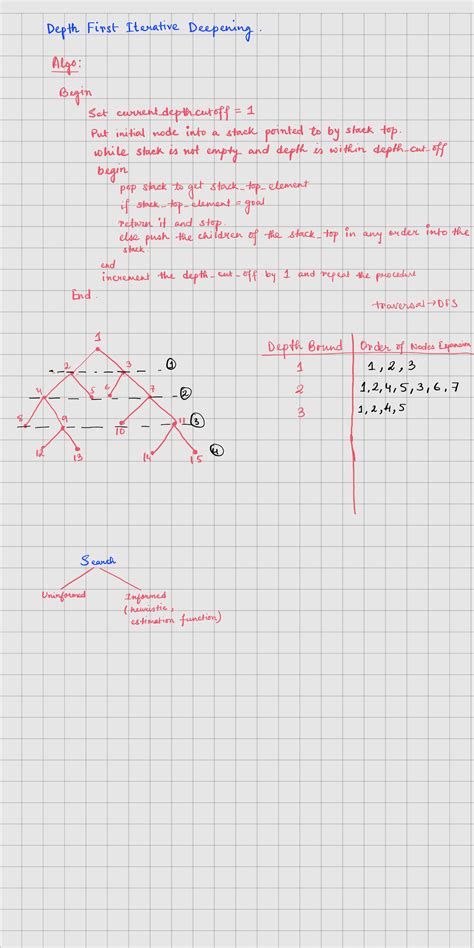 Depth First Iterative Deepening.
Algo:
Begin
Set current_depth_cutoff = 1
Put initial node into a stack pointed to by stack top.
while stack is not empty and depth is within depth_cut_off
begin
pop stack to get stack_top_element
if stack_top_element = goal
return it and stop.
else push the children of the stack_top in any order into the
stack.
end
increment the depth_cut_off by 1 and repeat the procedure
End.
traversal → DFS
1
2 3 1
4 5 6 7 2
8 9 10 11 3
12 13 14 15 4
Depth Bound Order of Nodes Expansion
1 1, 2, 3
2 1, 2, 4, 5, 3, 6, 7
3 1, 2, 4, 5
Search
Uninformed Informed
(heuristic,
estimation function)